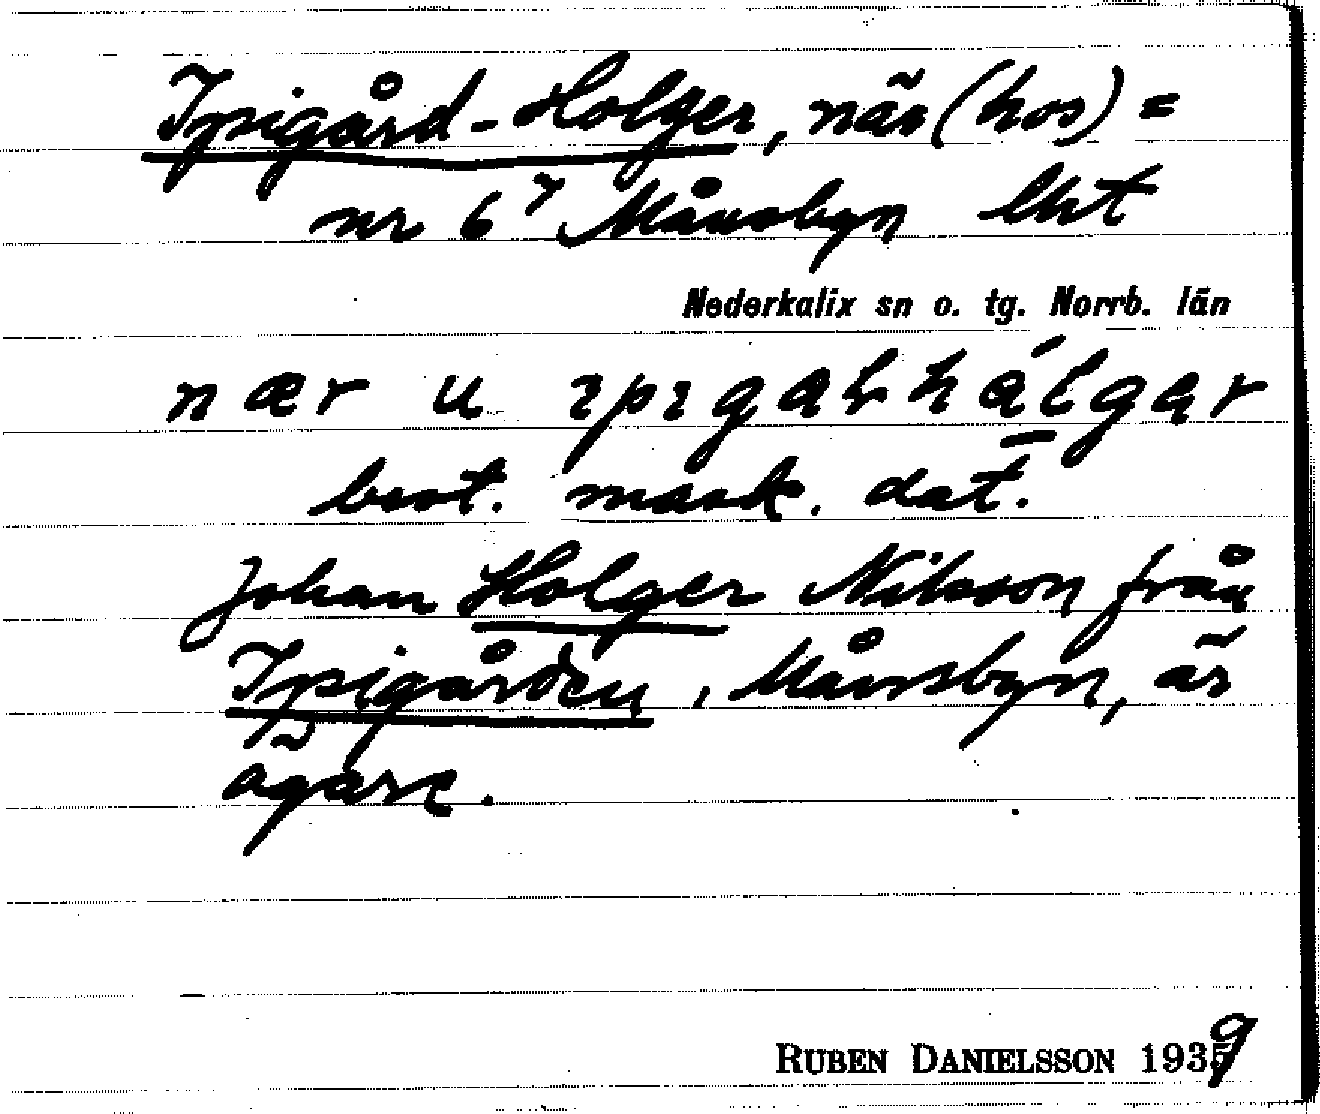 Ipsigård-Holger, när (hos) =
nr 6⁷ Månsbyn lht
Nederkalix sn o. tg. Norrb. län
nær u
best. mask. dat.
Johan Holger Nilsson från
Ipsigården, Månsbyn, är
ägare.
RUBEN DANIELSSON 1939